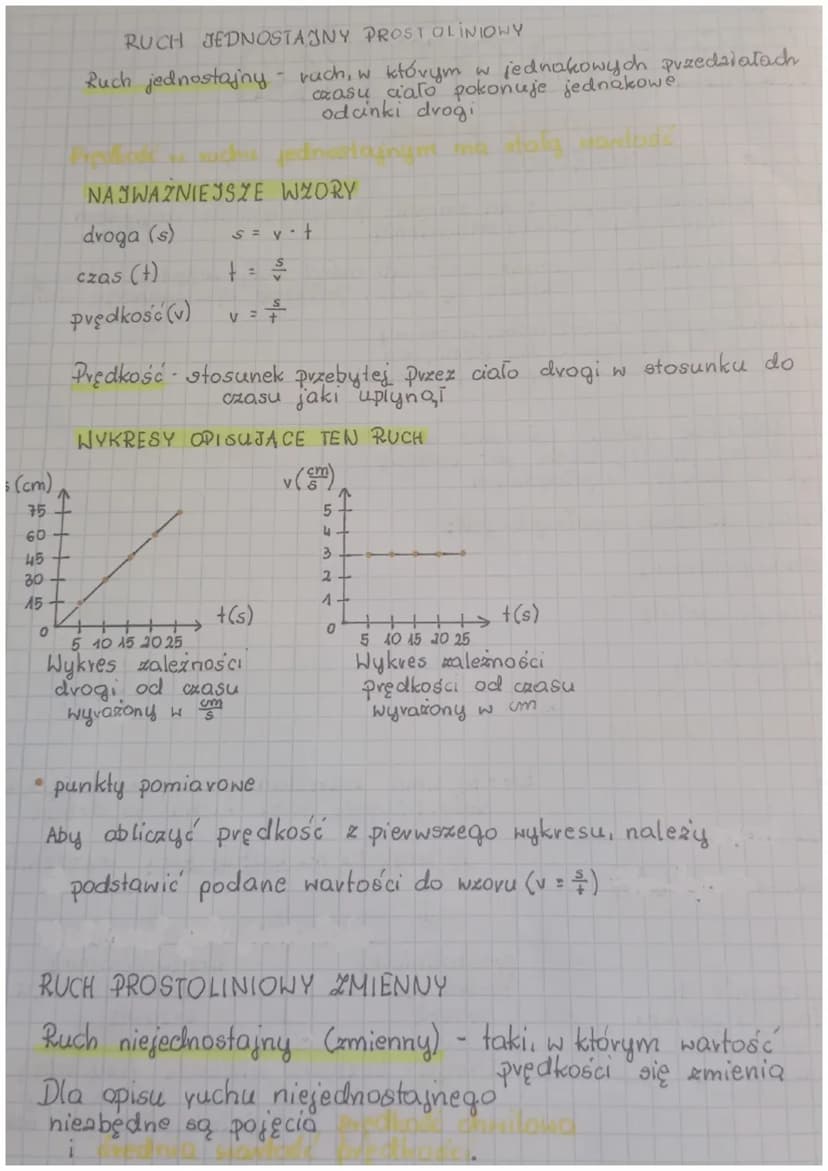 RUCH JEDNOSTAJNY PROSTOLINIOWY
Ruch jednostajny - ruch, w którym w jednakowych przedziałach
czasu ciało pokonuje jednakowe
odcinki drogi
Prędkość w ruchu jednostajnym ma stałą wartość
NAJWAŻNIEJSZE WZORY
droga (s) s = v · t
czas (t) t = s/v
prędkość (v) v = s/t
Prędkość - stosunek przebytej przez ciało drogi w stosunku do
czasu jaki upłynął
WYKRESY OPISUJĄCE TEN RUCH
s (cm)
75
60
45
30
15
0
5 10 15 20 25
t(s)
Wykres zależności
drogi od czasu
wyrażony w cm/s
v (cm/s)
5
4
3
2
1
0
5 10 15 20 25
t(s)
Wykres zależności
prędkości od czasu
wyrażony w cm
• punkty pomiarowe
Aby obliczyć prędkość z pierwszego wykresu, należy
podstawić podane wartości do wzoru (v = s/t)
RUCH PROSTOLINIOWY ZMIENNY
Ruch niejednostajny (zmienny) - taki, w którym wartość
prędkości się zmienia
Dla opisu ruchu niejednostajnego
niezbędne są pojęcia prędkość chwilowa
i średnia wartość prędkości.